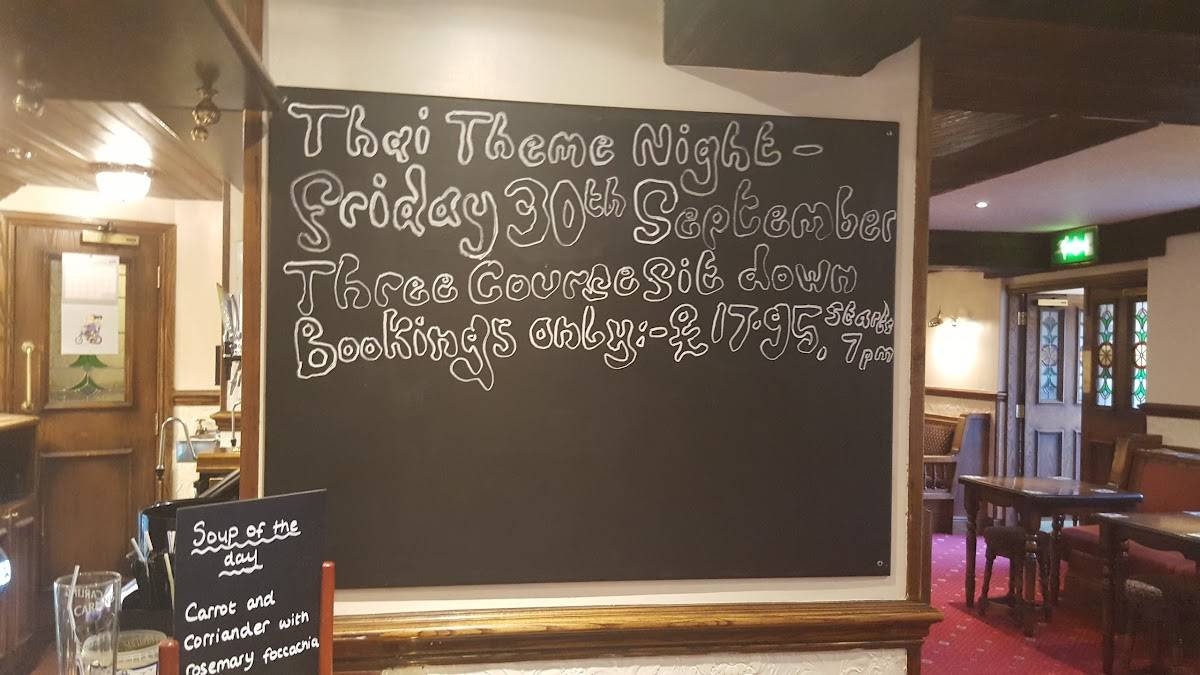 Thai Theme Night -
Friday 30th September
Three Course Sit down
Bookings only:- £17.95. starts 7pm
Soup of the
day
Carrot and
Corriander with
rosemary foccachia